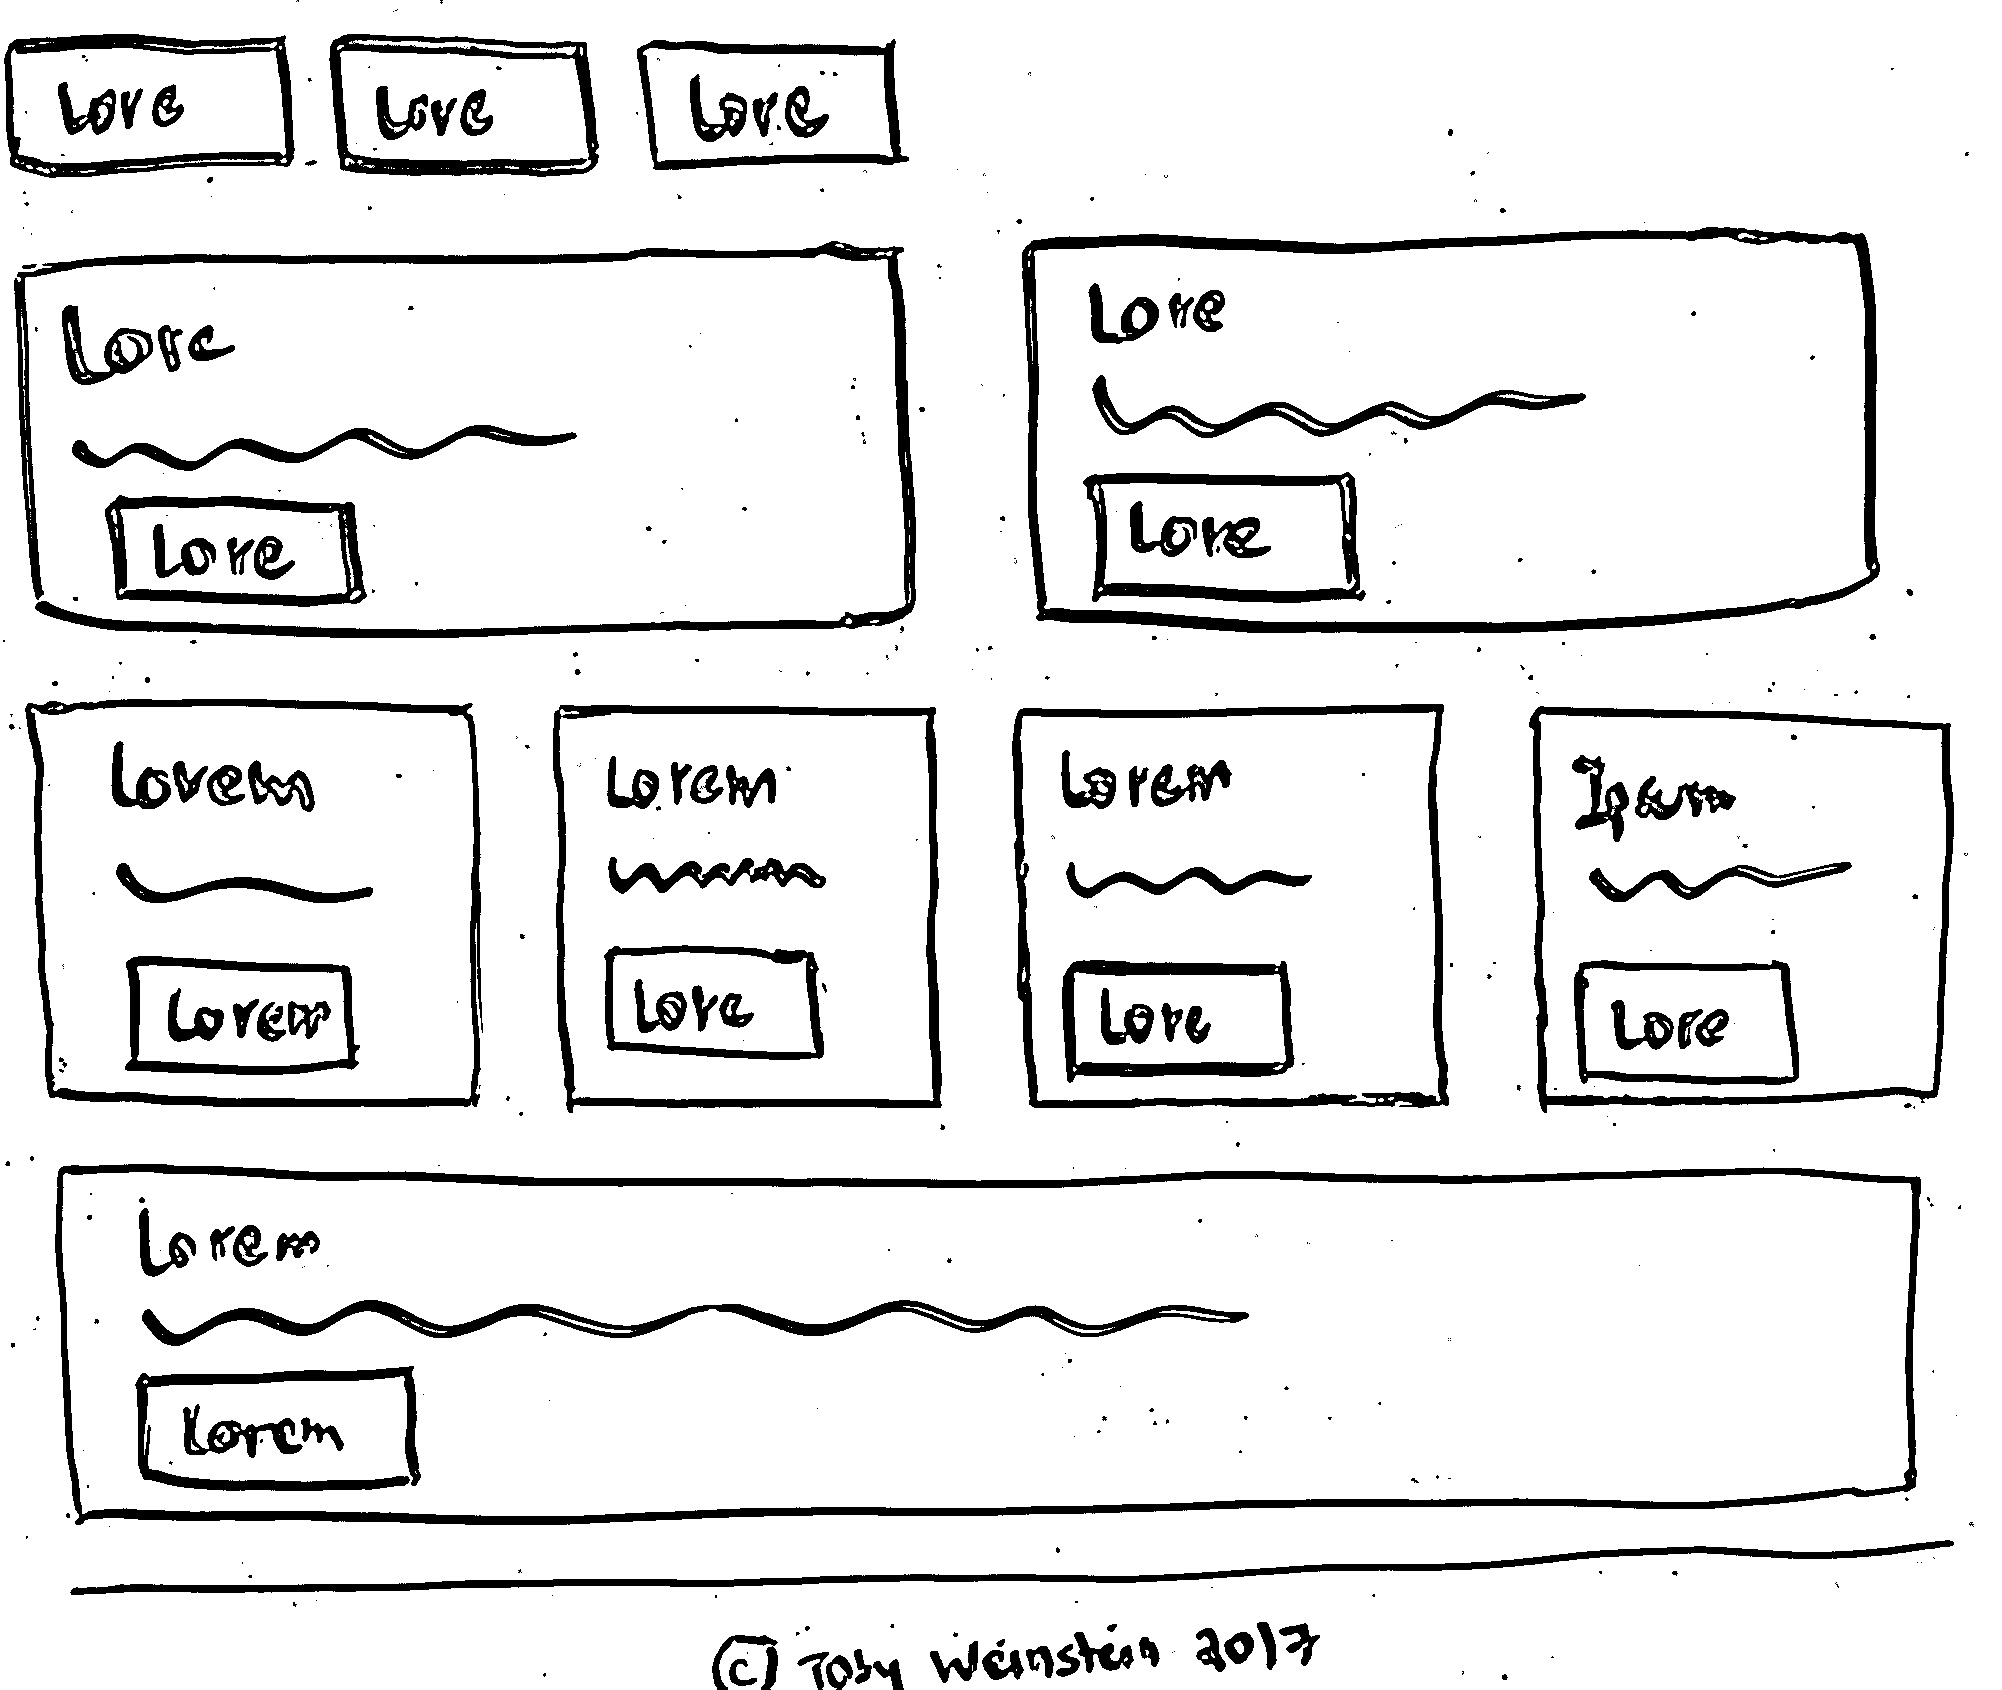 Lore Lore Lore
Lore
Lore
Lore
Lore
Lorem
Lorem
Lore
Lorem
Lore
Ipsum
Lore
Lorem
Lorem
Lorem
© Toby Weinstein 2017